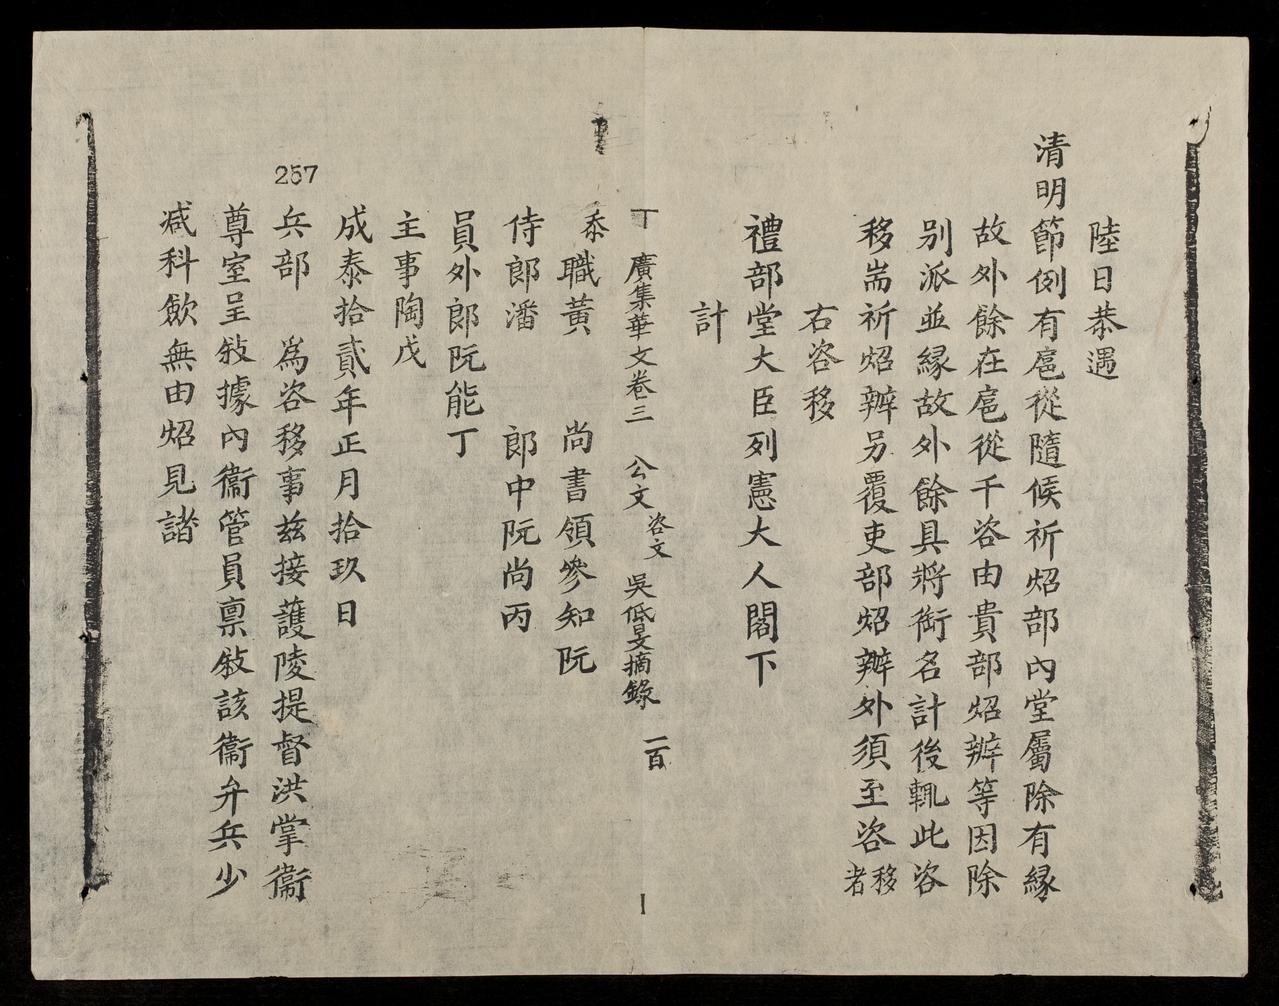 陸日恭遇
清明節例有扈從隨候祈炤部內堂屬除有緣
故外餘在扈從千咨由貴部炤辦等因除
別派並緣故外餘具將銜名計後輒此咨
移耑祈炤辦另覆吏部炤辦外須至咨移者
右咨移
禮部堂大臣列憲大人閣下
計
丁 廣集華文卷三 公文 咨文 吳低旻摘錄 一百
忝職黃 尚書領參知阮
侍郎潘 郎中阮尚丙
員外郎阮能丁
主事陶戊
成泰拾貳年正月拾玖日
257
兵部 爲咨移事茲接護陵提督洪掌衞
尊室呈敍據內衞管員禀敍該衞弁兵少
減科歛無由炤見諸